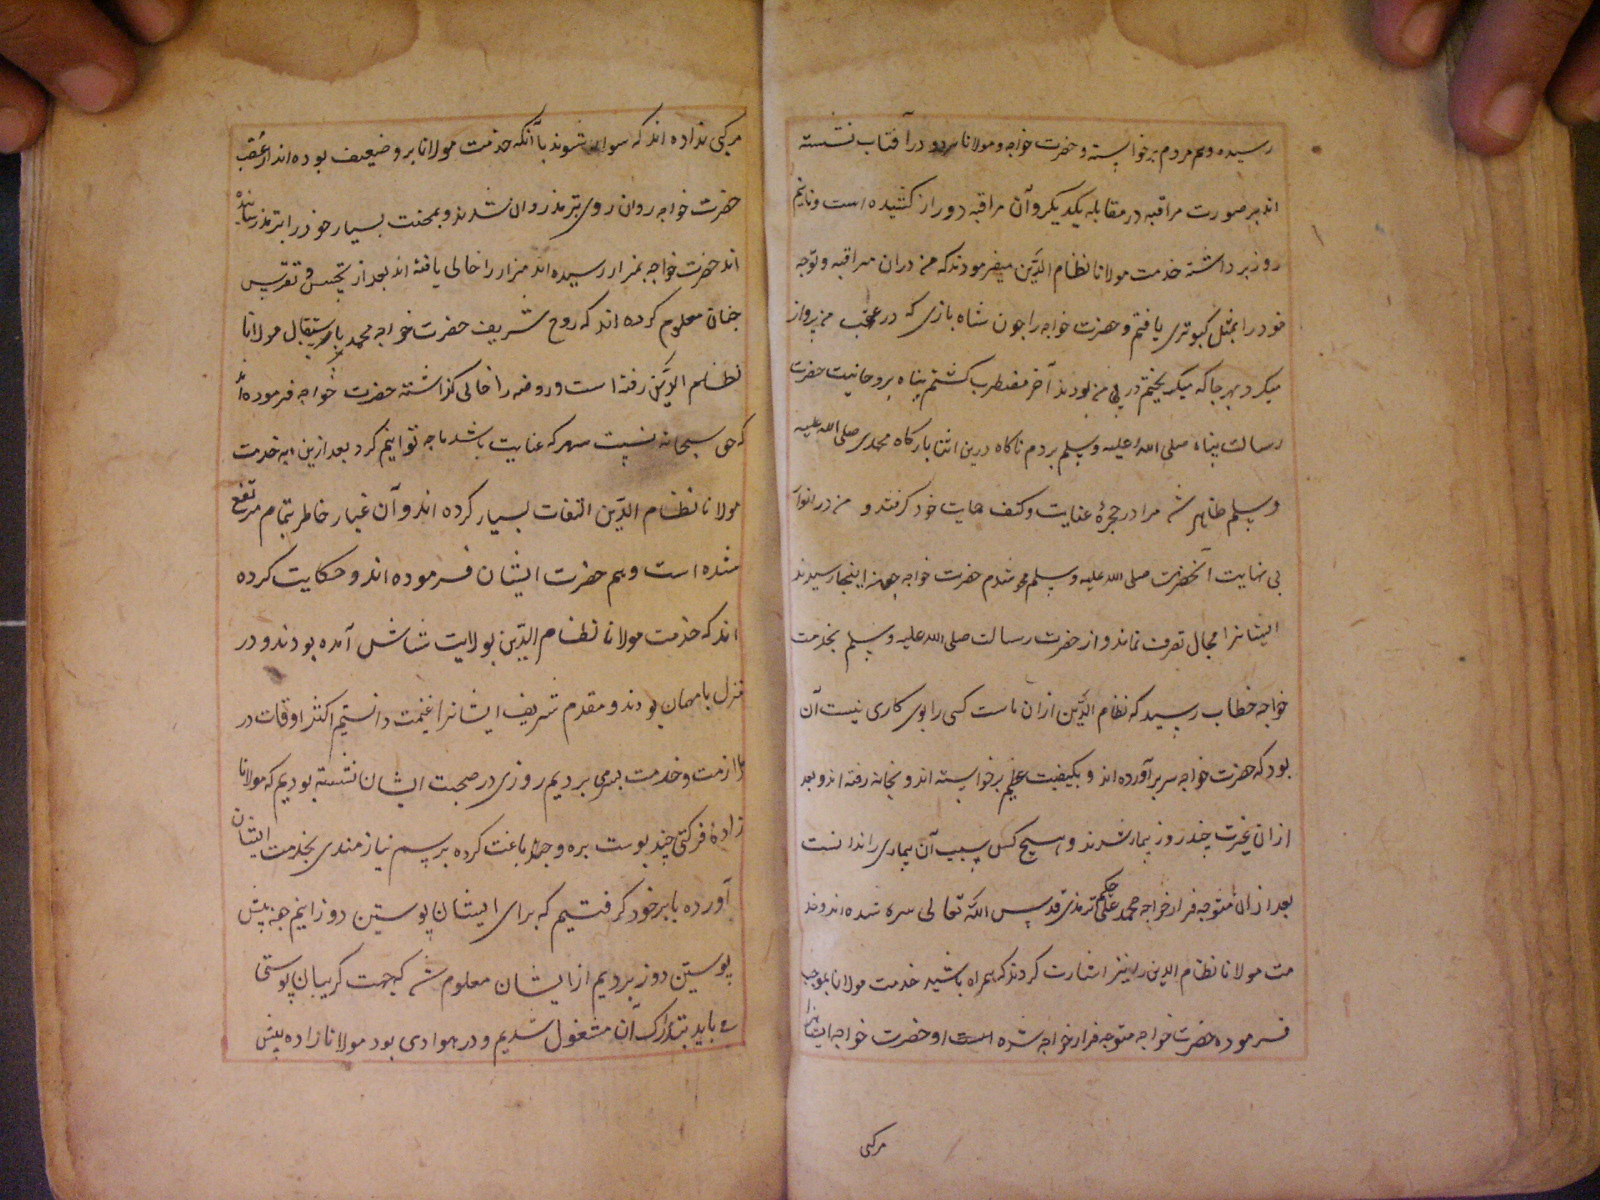 رسیده و هم مردم برخواسته و حضرت خواجه و مولانا هر دو در آفتاب نشسته
اند بر صورت مراقبه در مقابله یکدیگر و آن مراقبه دور از کشیده است و نایم
روز برداشته خدمت مولانا نظام الدین میفرمودند که من دران مراقبه و توجه
خود را بمثل کبوتری یافتم و حضرت خواجه را چون شاه بازی که در عقب من پرواز
میکرد بهر جا که میگریختم در پی من بودند آخر مضطرب گشتم پناه بروحانیت حضرت
رسالت پناه صلی الله علیه وسلم بردم ناگاه درین اثنا بارگاه محمدی صلی الله علیه
وسلم ظاهر شد مرا در حجرهٔ عنایت و کنف حمایت خود گرفتند و من در انوار
بی نهایت آنحضرت صلی الله علیه وسلم محو شدم حضرت خواجه چون اینجا رسیدند
ایشانرا مجال تصرف نماند و از حضرت رسالت صلی الله علیه وسلم بخدمت
خواجه خطاب رسید که نظام الدین ازان ماست کسی را بوی کاری نیست آن
بود که حضرت خواجه سر برآورده اند و بکیفیت عظیم برخواسته اند و بخانه رفته اند و بعد
ازان غیرت چند روز بیمار شدند و هیچ کس سبب آن بیماری را ندانست
بعد ازان متوجه مزار خواجه محمد علی حکیم ترمذی قدس الله تعالی سره شده اند و خد
مت مولانا نظام الدین را نیز اشارت کردند که همراه باشید خدمت مولانا بموجب
فرموده حضرت خواجه متوجه مزار خواجه شده است او حضرت خواجه ایشانرا
مرکبی
مرکبی نداده اند که سوار شوند با آنکه خدمت مولانا پیر و ضعیف بوده اند از عقب
حضرت خواجه روان روی بترمذ روان شدند و بمحنت بسیار خود را بترمذ رسانیده
اند حضرت خواجه بمزار رسیده اند مزار را خالی یافته اند بعد از تجسس و تفرس
چنان معلوم کرده اند که روح شریف حضرت خواجه محمد باستقبال مولانا
نظام الدین رفته است و روضه را خالی گذاشته حضرت خواجه فرموده اند
که حق سبحانه نسبت بهر که عنایت باشد ما چه توانیم کرد بعد ازین به خدمت
مولانا نظام الدین التفات بسیار کرده اند و آن غبار خاطر بتمام مرتفع
شده است و هم حضرت ایشان فرموده اند و حکایت کرده
اند که خدمت مولانا نظام الدین بولایت شاش آمده بودند و در
منزل ما مهمان بودند و مقدم شریف ایشانرا غنیمت دانستیم اکثر اوقات در
ملازمت و خدمت بسر می بردیم روزی در صحبت ایشان نشسته بودیم که مولانا
زادهٔ فرکتی چند پوست بره وجه دباغت کرده برسم نیازمندی بخدمت ایشان
آورده ما بر خود گرفتیم که برای ایشان پوستین دوزانیم چون پیش
پوستین دوز بردیم از ایشان معلوم شد که جهت گریبان پوستی
می باید بتدارک آن مشغول شدیم و در هوا دی بود مولانا زاده پیش